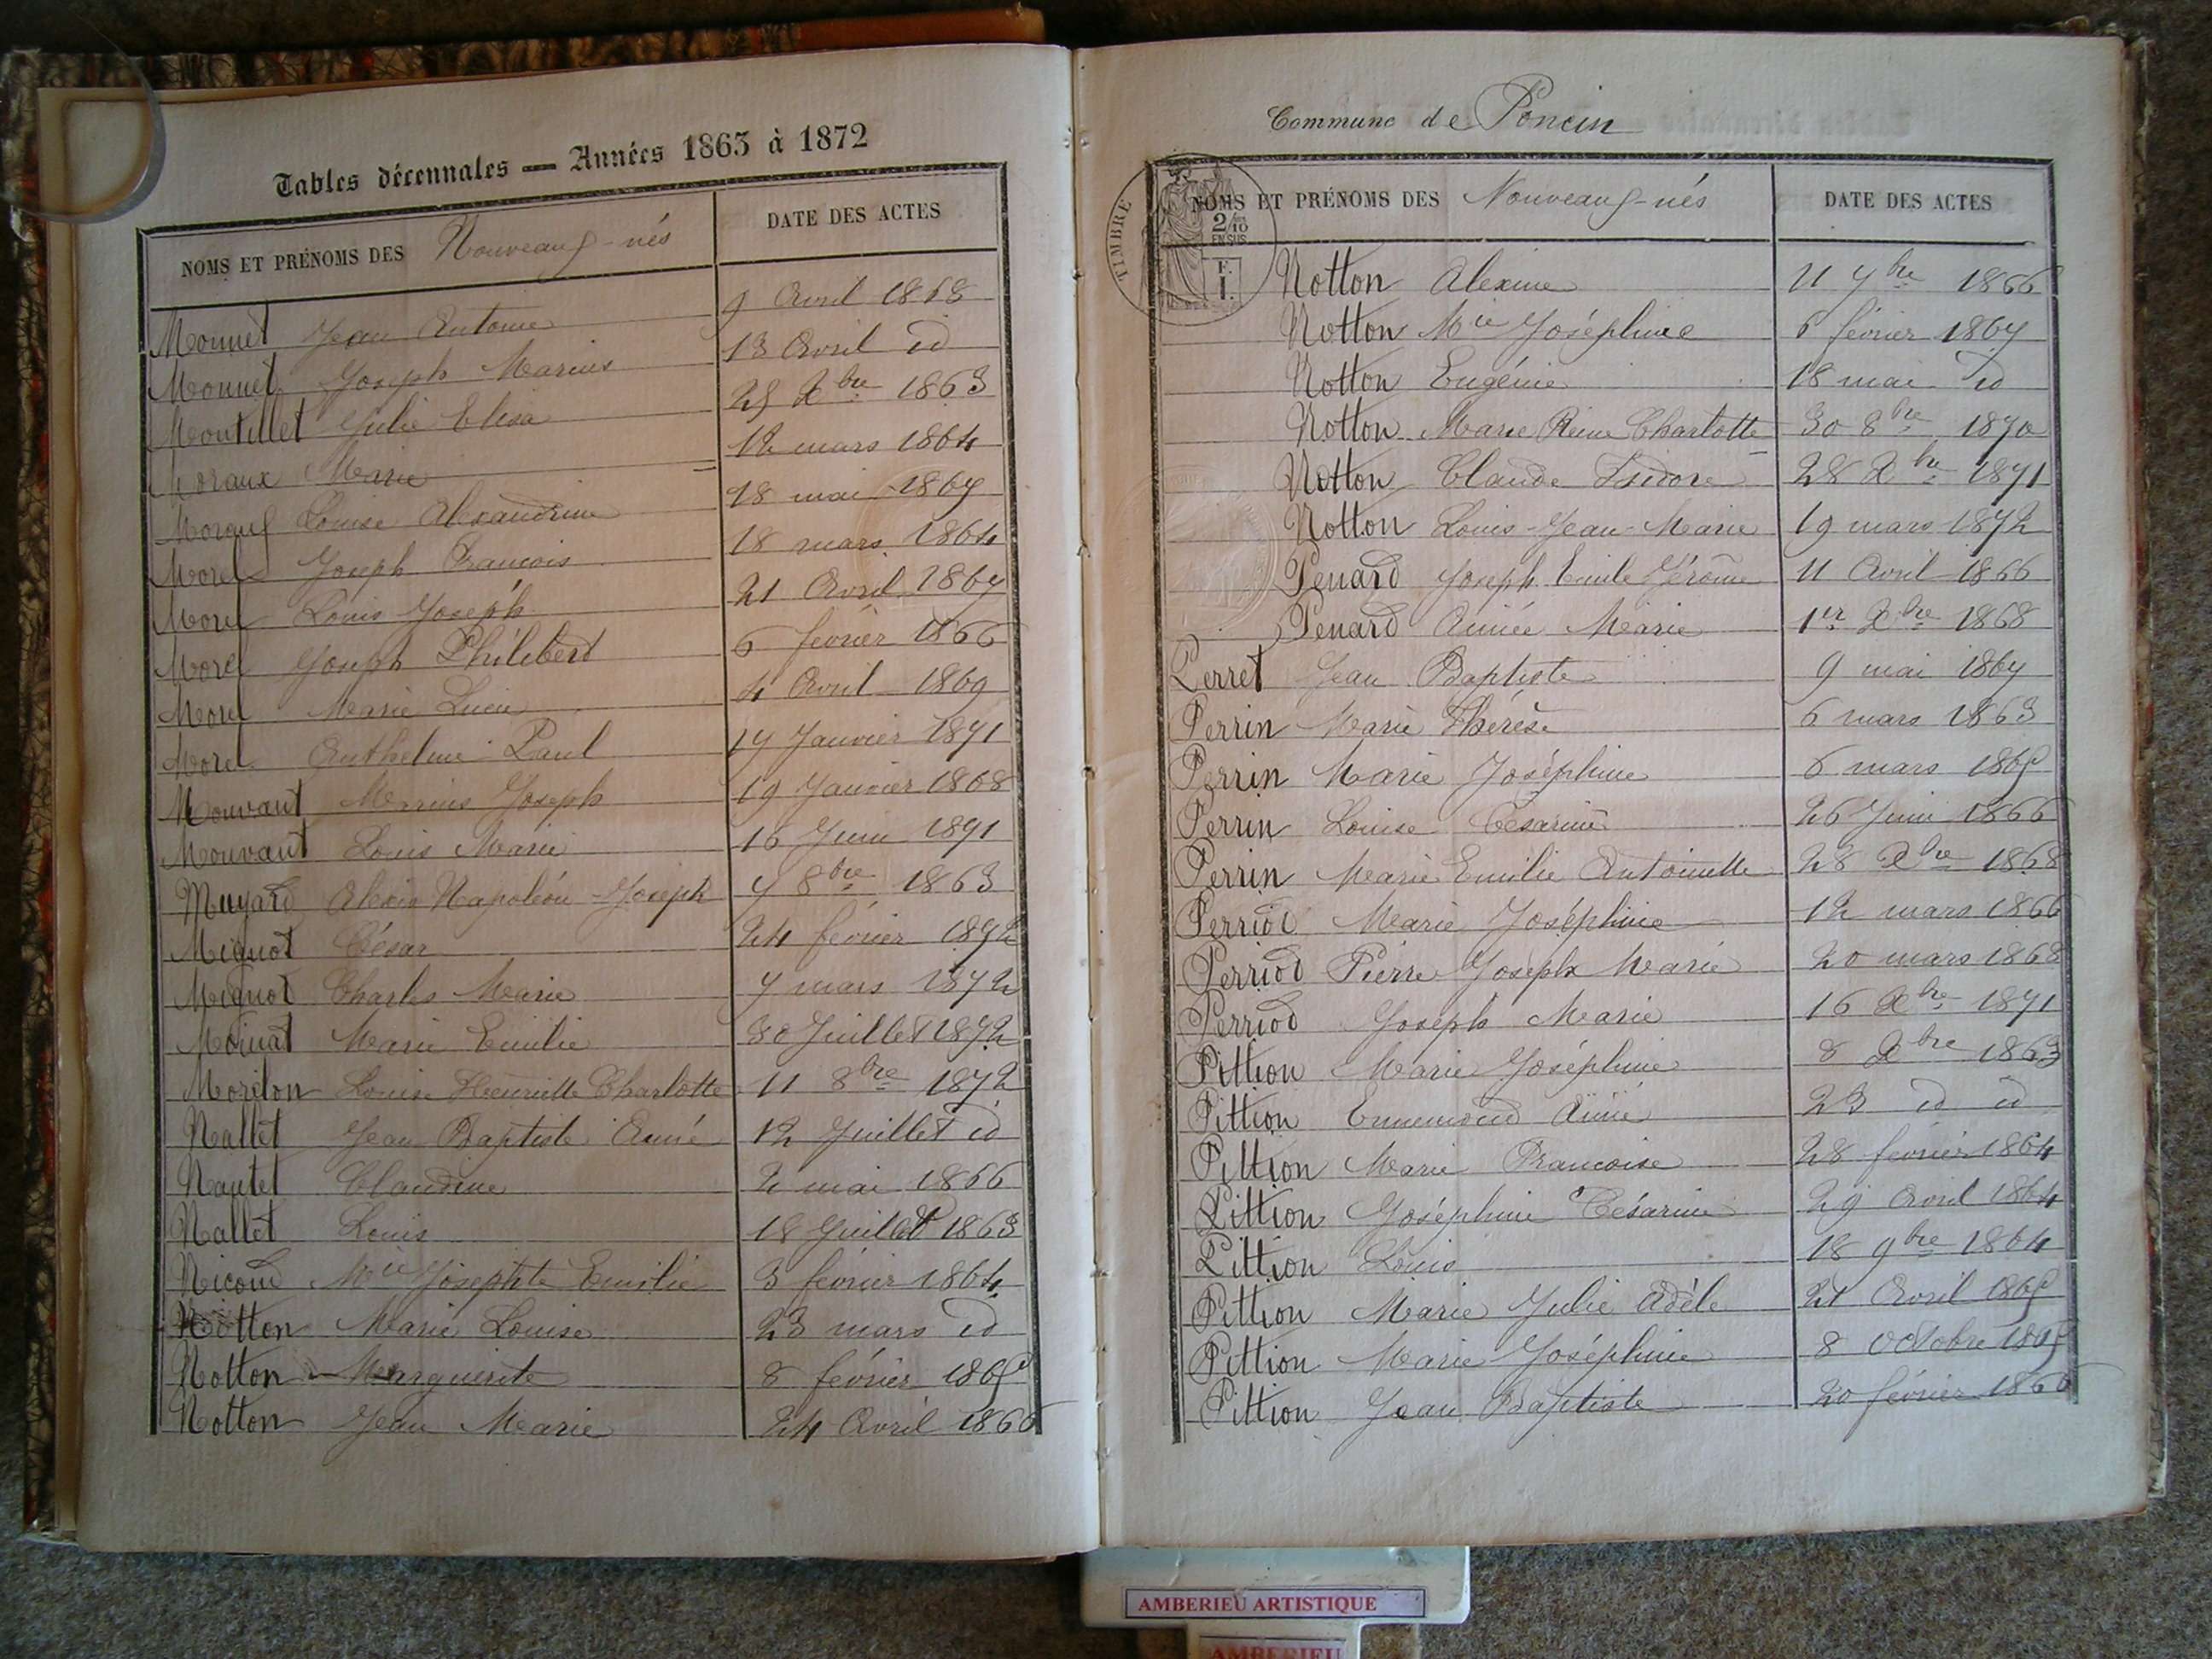 Tables décennales — Années 1863 à 1872
NOMS ET PRÉNOMS DES Nouveaux-nés DATE DES ACTES
Monnet Jean Antoine 9 Avril 1868
Monnet Joseph Marius 13 Avril id
Montillet Julie Elisa 25 Xbre 1863
Moraux Marie 12 mars 1864
Moraux Louise Alexandrine 18 mai 1867
Morel Joseph François 18 mars 1864
Morel Louis Joseph 21 Avril 1867
Morel Joseph Philibert 6 février 1866
Morel Marie Lucie 4 Avril 1869
Morel Anthelme Paul 17 Janvier 1871
Mouvant Marius Joseph 19 Janvier 1868
Mouvant Louis Marie 16 Juin 1871
Muyard Alexis Napoléon-Joseph 7 8bre 1863
Mignot César 24 février 1872
Mignot Charles Marie 7 mars 1872
Moinat Marie Emilie 30 Juillet 1872
Morelon Louise Henriette Charlotte 11 8bre 1872
Nallet Jean Baptiste Aimé 12 Juillet id
Nantet Claudine 2 mai 1866
Nallet Louis 18 Juillet 1863
Nicoud Mie Josephte Emilie 3 février 1864
Notton Marie Louise 23 mars id
Notton Marguerite 8 février 1865
Notton Jean Marie 24 Avril 1866
Commune de Poncin
TIMBRE
2/10
EN SUS
F.
1.
NOMS ET PRÉNOMS DES Nouveaux-nés DATE DES ACTES
Notton Alexine 11 7bre 1866
Notton Mie Joséphine 6 février 1867
Notton Eugénie 18 mai id
Notton Marie Reine Charlotte 30 8bre 1870
Notton Claude Isidore 28 Xbre 1871
Notton Louis-Jean-Marie 19 mars 1872
Penard Joseph Emile Jérôme 11 Avril 1866
Penard Aimée Marie 1er Xbre 1868
Perret Jean Baptiste 9 mai 1867
Perrin Marie Thérèse 6 mars 1863
Perrin Marie Joséphine 6 mars 1865
Perrin Louise Césarine 26 Juin 1866
Perrin Marie Emilie Antoinette 28 Xbre 1868
Perriod Marie Joséphine 12 mars 1866
Perriod Pierre Joseph Marie 20 mars 1868
Perriod Joseph Marie 16 Xbre 1871
Pittion Marie Joséphine 8 Xbre 1863
Pittion Ennemond Aimé 23 id id
Pittion Marie Françoise 28 février 1864
Pittion Joséphine Césarine 29 Avril 1864
Pittion Louis 18 9bre 1864
Pittion Marie Julie Adèle 21 Avril 1865
Pittion Marie Joséphine 8 Octobre 1865
Pittion Jean Baptiste 20 février 1866
AMBERIEU ARTISTIQUE
AMBERIEU